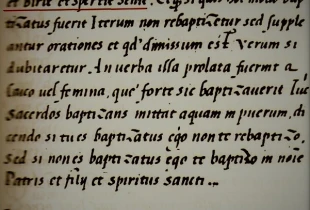 et Birie et spertie seine. si quis
tizatus fuerit Iterum non rebaptizetur sed supple
antur orationes et qd' dimissum est. Verum si
dubitaretur. An verba illa prolata fuerint a
laico vel femina, que' forte sic baptizauerit tuc
Sacerdos baptizans mittat aquam in puerum, di
cendo si tu es baptizatus ego non te rebaptizo.
Sed si non es baptizatus ego te baptizo in noie
Patris et filij et spiritus sancti ...